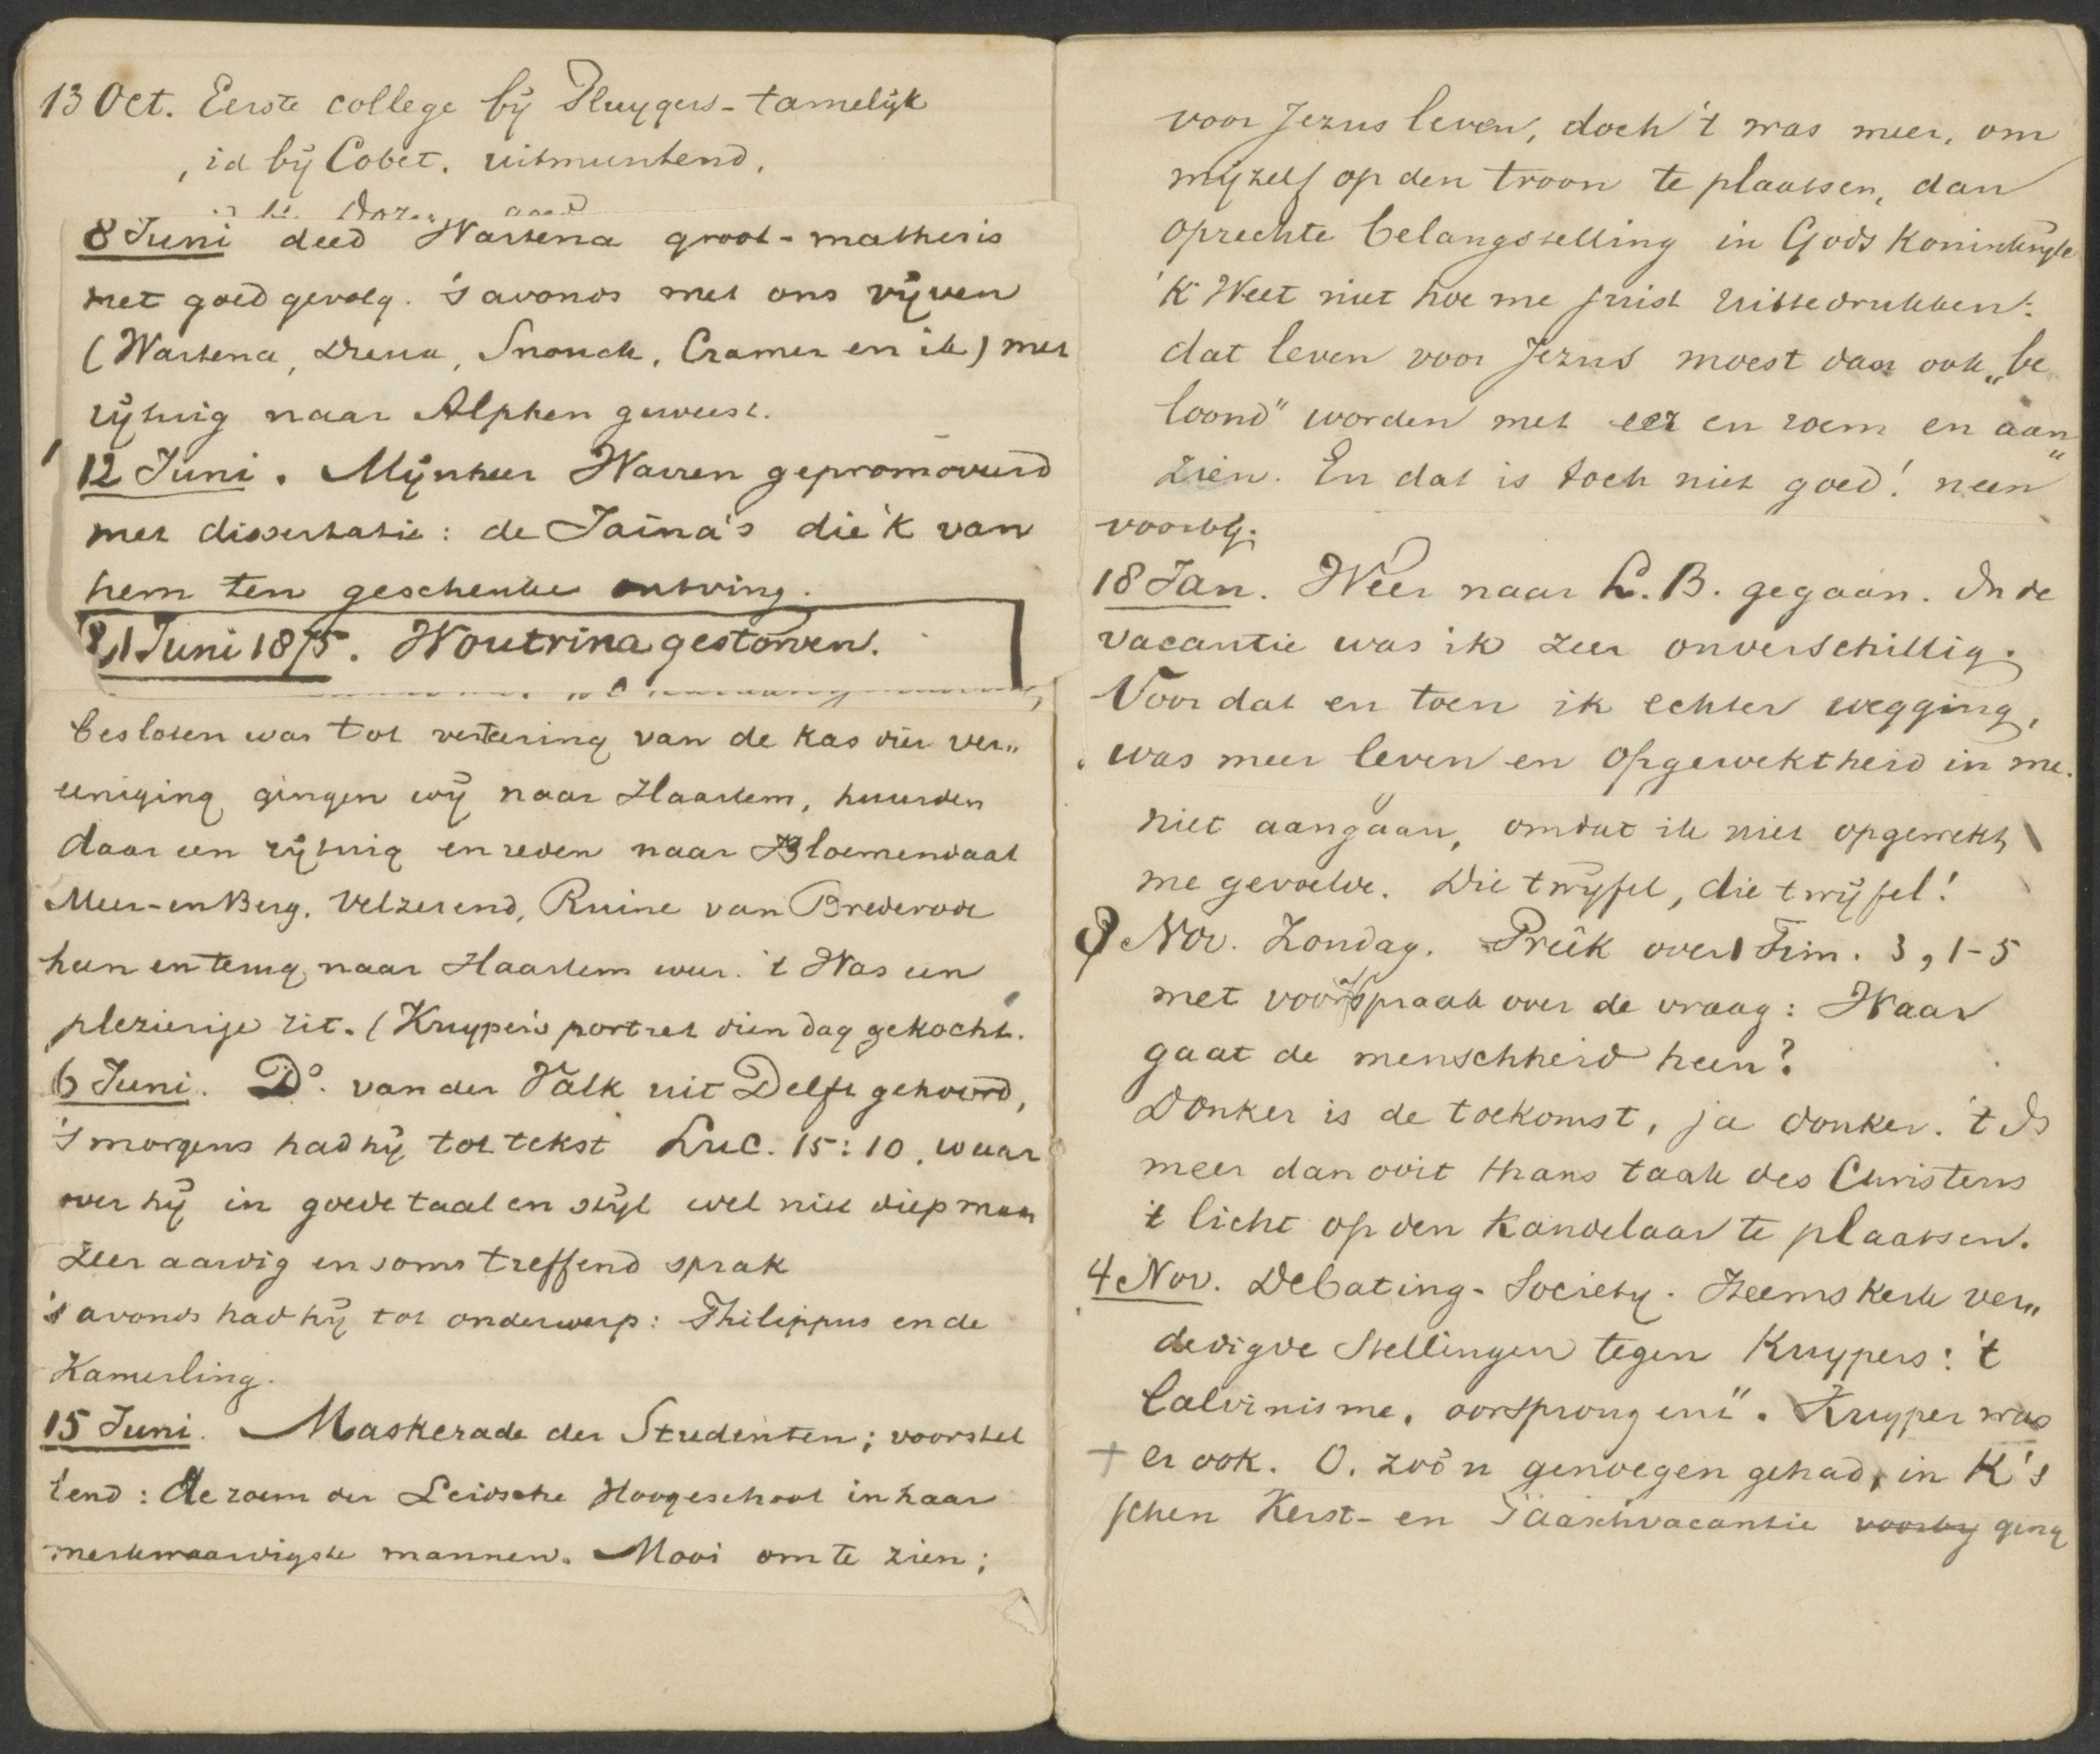 13 Oct. Eerste college bij Pluygers - tamelijk
, id bij Cobet. uitmuntend.
8 Juni deed Wartena groot-mathesis
met goed gevolg. 's avonds met ons vijven
(Wartena, Snouck, Cramer en ik) met
rijtuig naar Alphen geweest.
12 Juni. Mijnheer Warren gepromoveerd
met dissertatie: de Jaina's die 'k van
hem ten geschenke ontving.
21 Juni 1875. Woutrina gestorven.
besloten was tot vertering van de kas dier ver„
eeniging gingen wij naar Haarlem, huurden
daar een rijtuig en reden naar Bloemendaal
Meer-en Berg, Velzerend, Ruine van Brederode
heen en terug naar Haarlem weer. 't Was een
plezierige rit. (Kuyper's portret dien dag gekocht.
6 Juni. Do. van der Valk uit Delft gehoord,
's morgens had hij tot tekst Luc. 15:10, waar
over hij in goede taal en stijl wel niet diep maar
zeer aardig en soms treffend sprak
's avonds had hij tot onderwerp: Philippus en de
Kamerling.
15 Juni. Maskerade der Studenten; voorstel
lend: de roem der Leidsche Hoogeschool in haar
merkwaardigste mannen. Mooi om te zien;
voor Jezus leven, doch 't was meer, om
mijzelf op den troon te plaatsen, dan
oprechte belangstelling in Gods Koninkrijk
'K Weet niet hoe me juist uittedrukken:
dat leven voor Jezus moest dan ook „be
loond" worden met eer en roem en aan„
zien. En dat is toch niet goed! neen
voorbij.
18 Jan. Weer naar L. B. gegaan. In de
vacantie was ik zeer onverschillig.
Voor dat en toen ik echter wegging,
was meer leven en opgewektheid in me.
niet aangaan, omdat ik niet opgewekt
me gevoelde. Die twijfel, die twijfel!
Nov. Zondag. Preêk over 1 Tim. 3, 1-5
met voorspraak over de vraag: Waar
gaat de menschheid heen?
Donker is de toekomst, ja donker. 't Is
meer dan ooit thans taak des Christens
't licht op den Kandelaar te plaatsen.
4 Nov. Debating-Society. Heemskerk ver„
dedigde Stellingen tegen Kuypers: 't
Calvinisme, oorsprong en". Kuyper was
+ er ook. O, zoo'n genoegen gehad, in K's
schen Kerst- en Paaschvacantie voorby ging